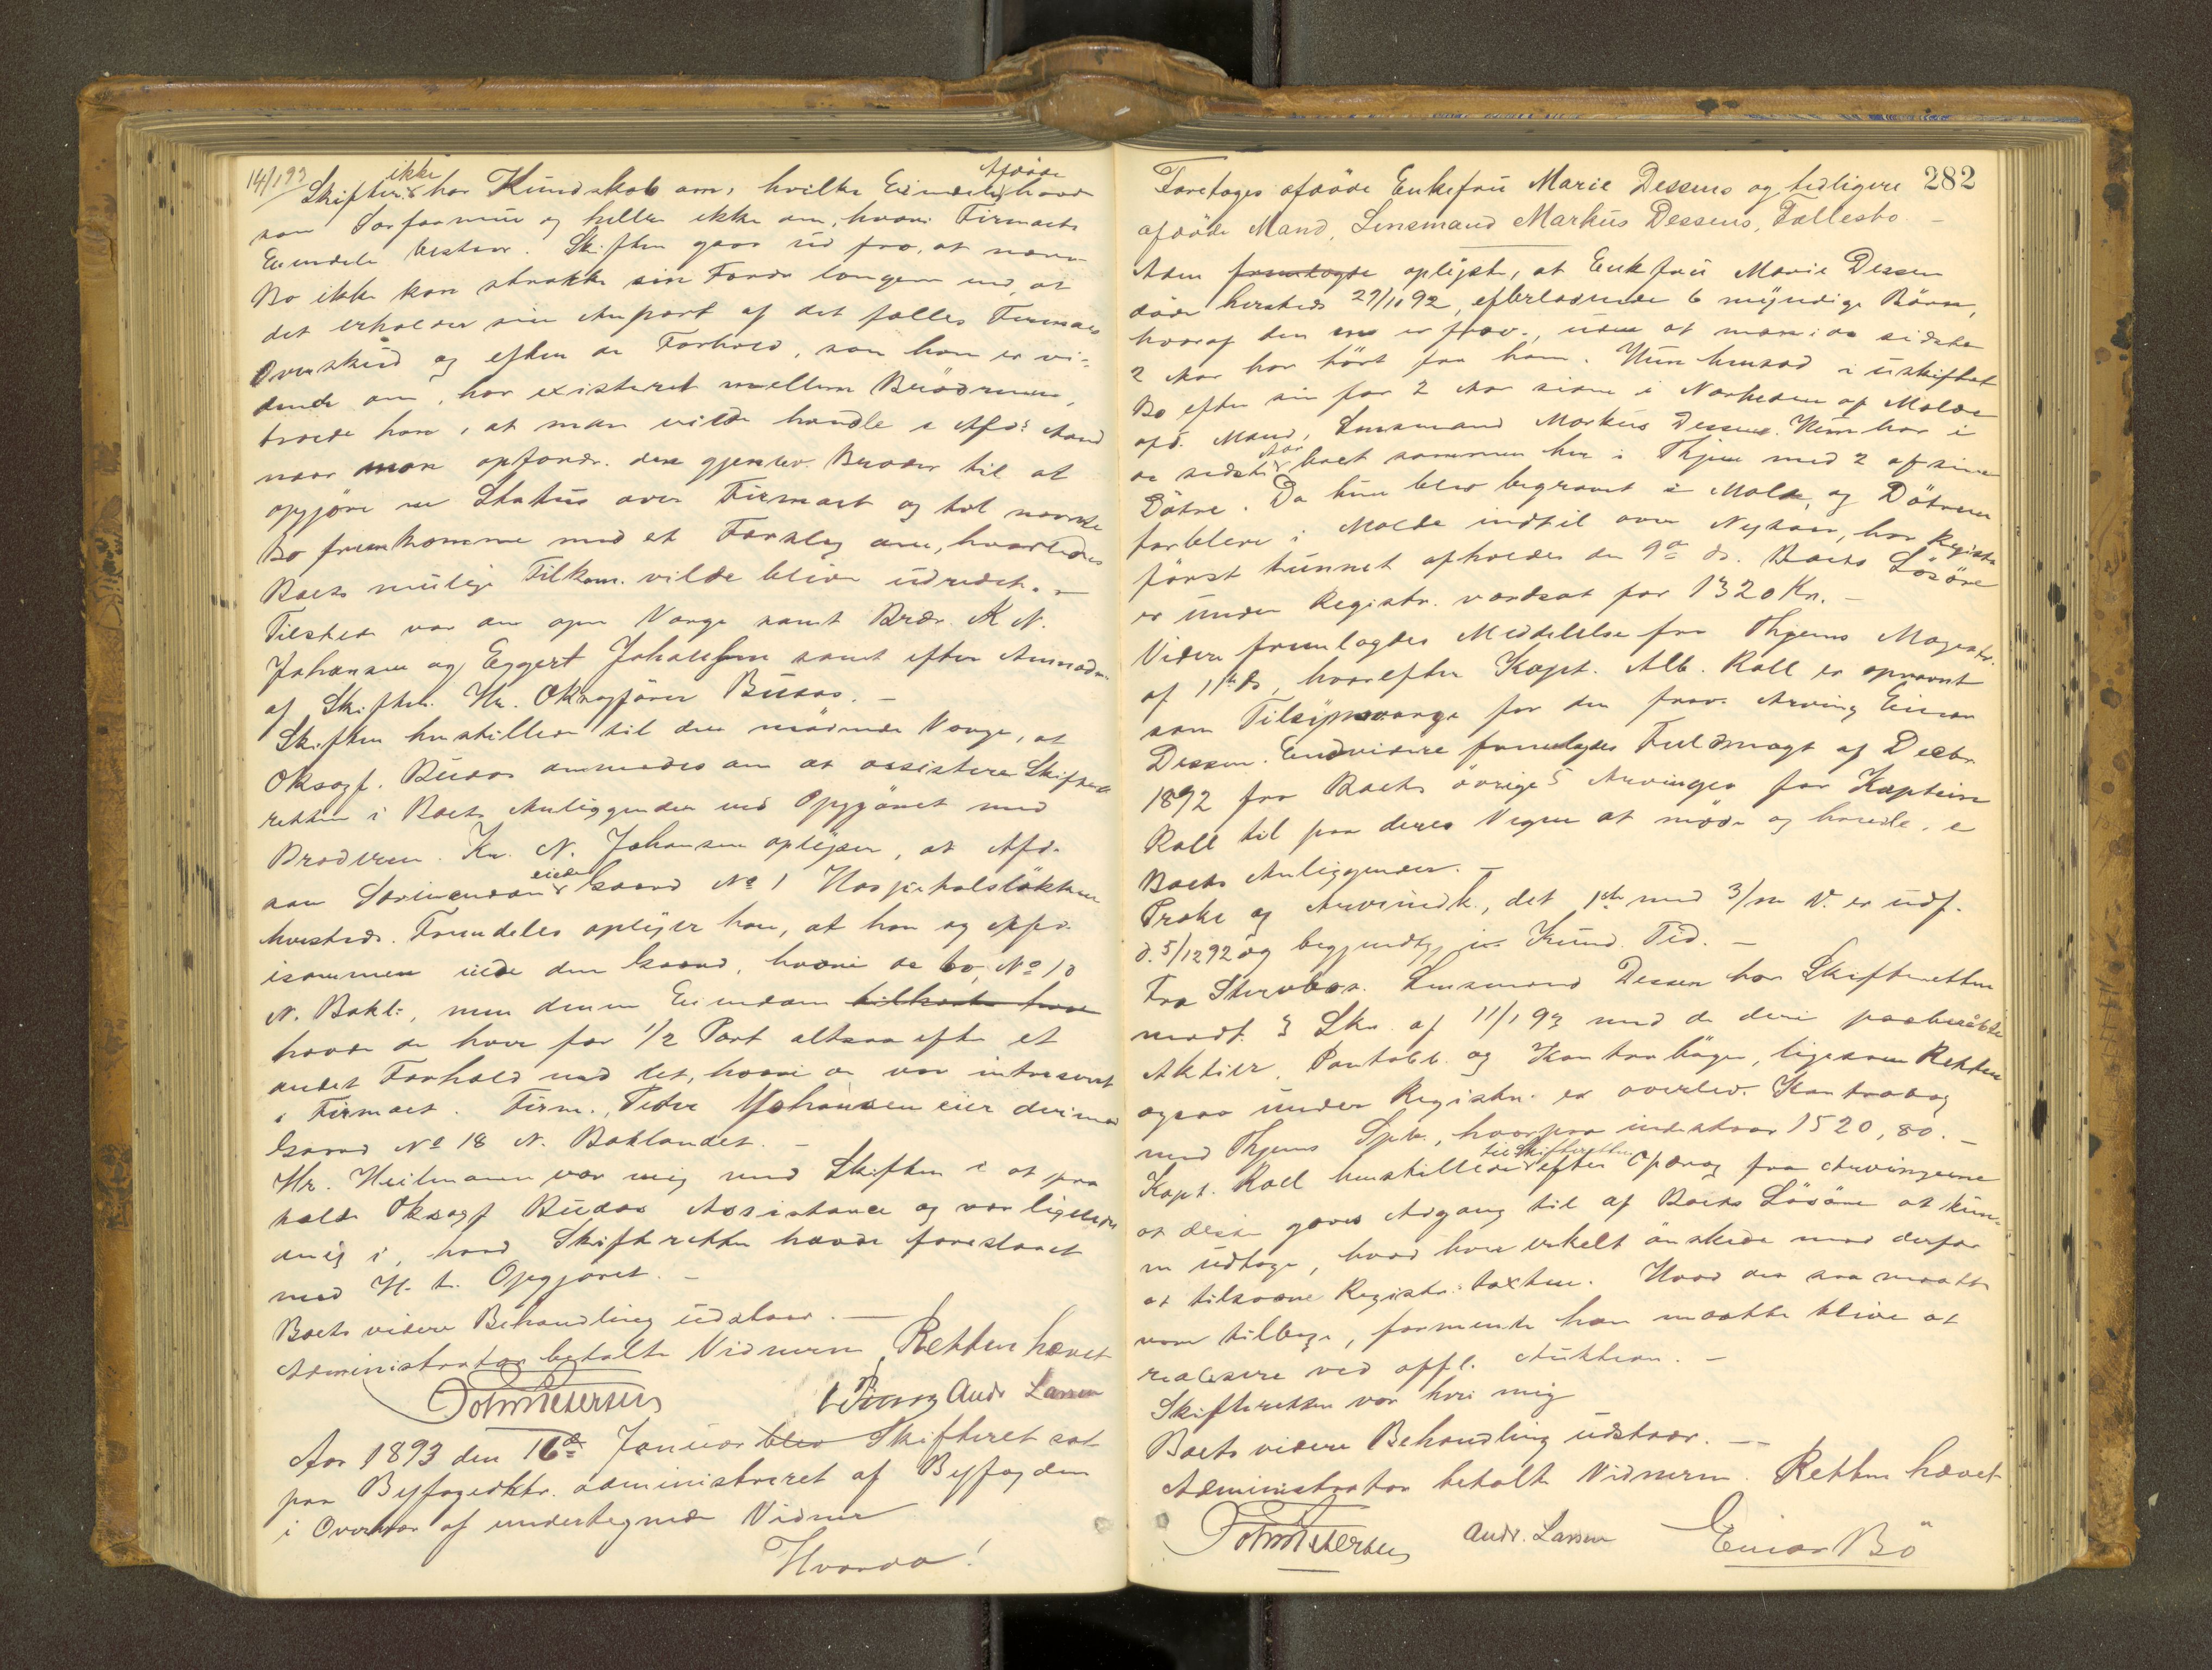 14/1 93
Skifter. ikke har Kundskab om, hvilke Eiendele Afdøde havde
som Særformue og heller ikke om, hvori Firmaets
Eiendele bestaar. Skiften gaar ud fra, at nærv.
Bo ikke kan strække sin Fordr længere end, at
det erholder sin Anpart af det fælles Firmaes
Overskud og efter de Forhold, som han er vi-
dende om, har existeret mellem Brødrene,
troede han, at man vilde handle i Afd.s Aand
naar man opfordr. den gjenlev. Broder til at
opgjøre en Status over Firmaet og til nærv.
Bo fremkomme med et Forslag om, hvorledes
Boets mulige Tilkom. vilde blive udredet. –
Tilstede var den opn Værge samt Brdr. K N.
Johansen og Eggert Johansen samt efter Anmodn
af Skifter. Hr. Oksagfører Buaas. –
Skiften henstillede til den mødende Værge, at
Oksagf. Buaas anmodes om at assistere Skifte
retten i Boets Anliggender ved Opgjøret med
Broderen. Kr. N. Johansen oplyser, at Afd.
som Særeiendom eier Gaard No 1 Hospitalsløkken
hersteds. Fremdeles oplyser han, at han og Afd.
isammen eiede den Gaard, hvori de bo, No 10
N. Bakl:, men denne Eiendom
havde de hver for 1/2 Part altsaa efter et
andet Forhold end det, hvori de var interesseret
i Firmaet. Firm. Peder Johansen eier derimod
Gaard No 18 N. Baklandet. –
Hr. Heilmann var enig med Skiften i at paa
kalde Oksagf Buaas Assistance og var ligeledes
enig i, hvad Skifteretten havde foreslaaet
med H. t. Opgjøret. –
Boets videre Behandling udstaar. –
Administrator betalte Vidnerne. Retten hævet
Andr Larsen
Aar 1893 den 16de Januar blev Skifteret sat
paa Byfogedktr. administreret af Byfogden
i Overvær af undertegnede Vidner
Hvorda!
282
Foretages afdøde Enkefru Marie Dessens og tidligere
afdøde Mand, Lensmand Markus Dessens, Fællesbo –
Adm fremlagde oplyste, at Enkefru Marie Dessen
døde hersteds 29/11 92, efterladende 6 myndige Børn,
hvoraf den ene er frav., uden at man i de sidste
2 Aar har hørt fra ham. Hun hensad i uskiftet
Bo efter sin for 2 Aar siden i Nærheden af Molde
afd. Mand, Lensmand Markus Dessen. Hun har i
de sidste Aar boet sammen her i Thjem med 2 af sine
Døtre. Da hun blev begravet i Molde, og Døtrene
forblev i Molde indtil over Nytaar, har Registr
først kunnet afholdes den 9de ds. Boets Løsøre
er under Registr. værdsat for 1320 Kr. –
Videre fremlagdes Meddelelse fra Thjems Magistr.
af 11te ds, hvorefter Kapt. Alb. Roll er opnævnt
som Tilsynsværge for den frav. Arving Einar
Dessen. Endvidere fremlagdes Fuldmagt af Decbr
1892 fra Boets øvrige 5 Arvinger for Kaptein
Roll til paa deres Vegne at møde og handle i
Boets Anliggender. –
Prokl og Arveindk., det 1ste med 3/m V. er udf.
d. 5/12 92 og begyndt i Kund. Tid. –
Fra Stervbos. Lensmand Dessen har Skifteretten
modt. 3 Skr. af 11/1 93 med de deri paaberaabte
Aktier, Pantobl. og Kontrabøger, ligesom Retten
ogsaa under Registr. er overlev. Kontrabog
med Thjems Spb., hvorpaa indestaar 1520,80. –
Kapt. Roll henstillede til Skifteretten efter Opdrag fra Arvingerne
at disse gaves Adgang til af Boets Løsøre at kun-
ne udtage, hvad hver enkelt ønskede mod derfor
at tilsvare Registr.taxten. Hvad der saa maatte
være tilbage, formente han maatte blive at
realisere ved offl. Auktion. –
Skifteretten var heri enig
Boets videre Behandling udstaar. –
Administrator betalte Vidnerne. Retten hævet
Andr. Larsen Einar Bö